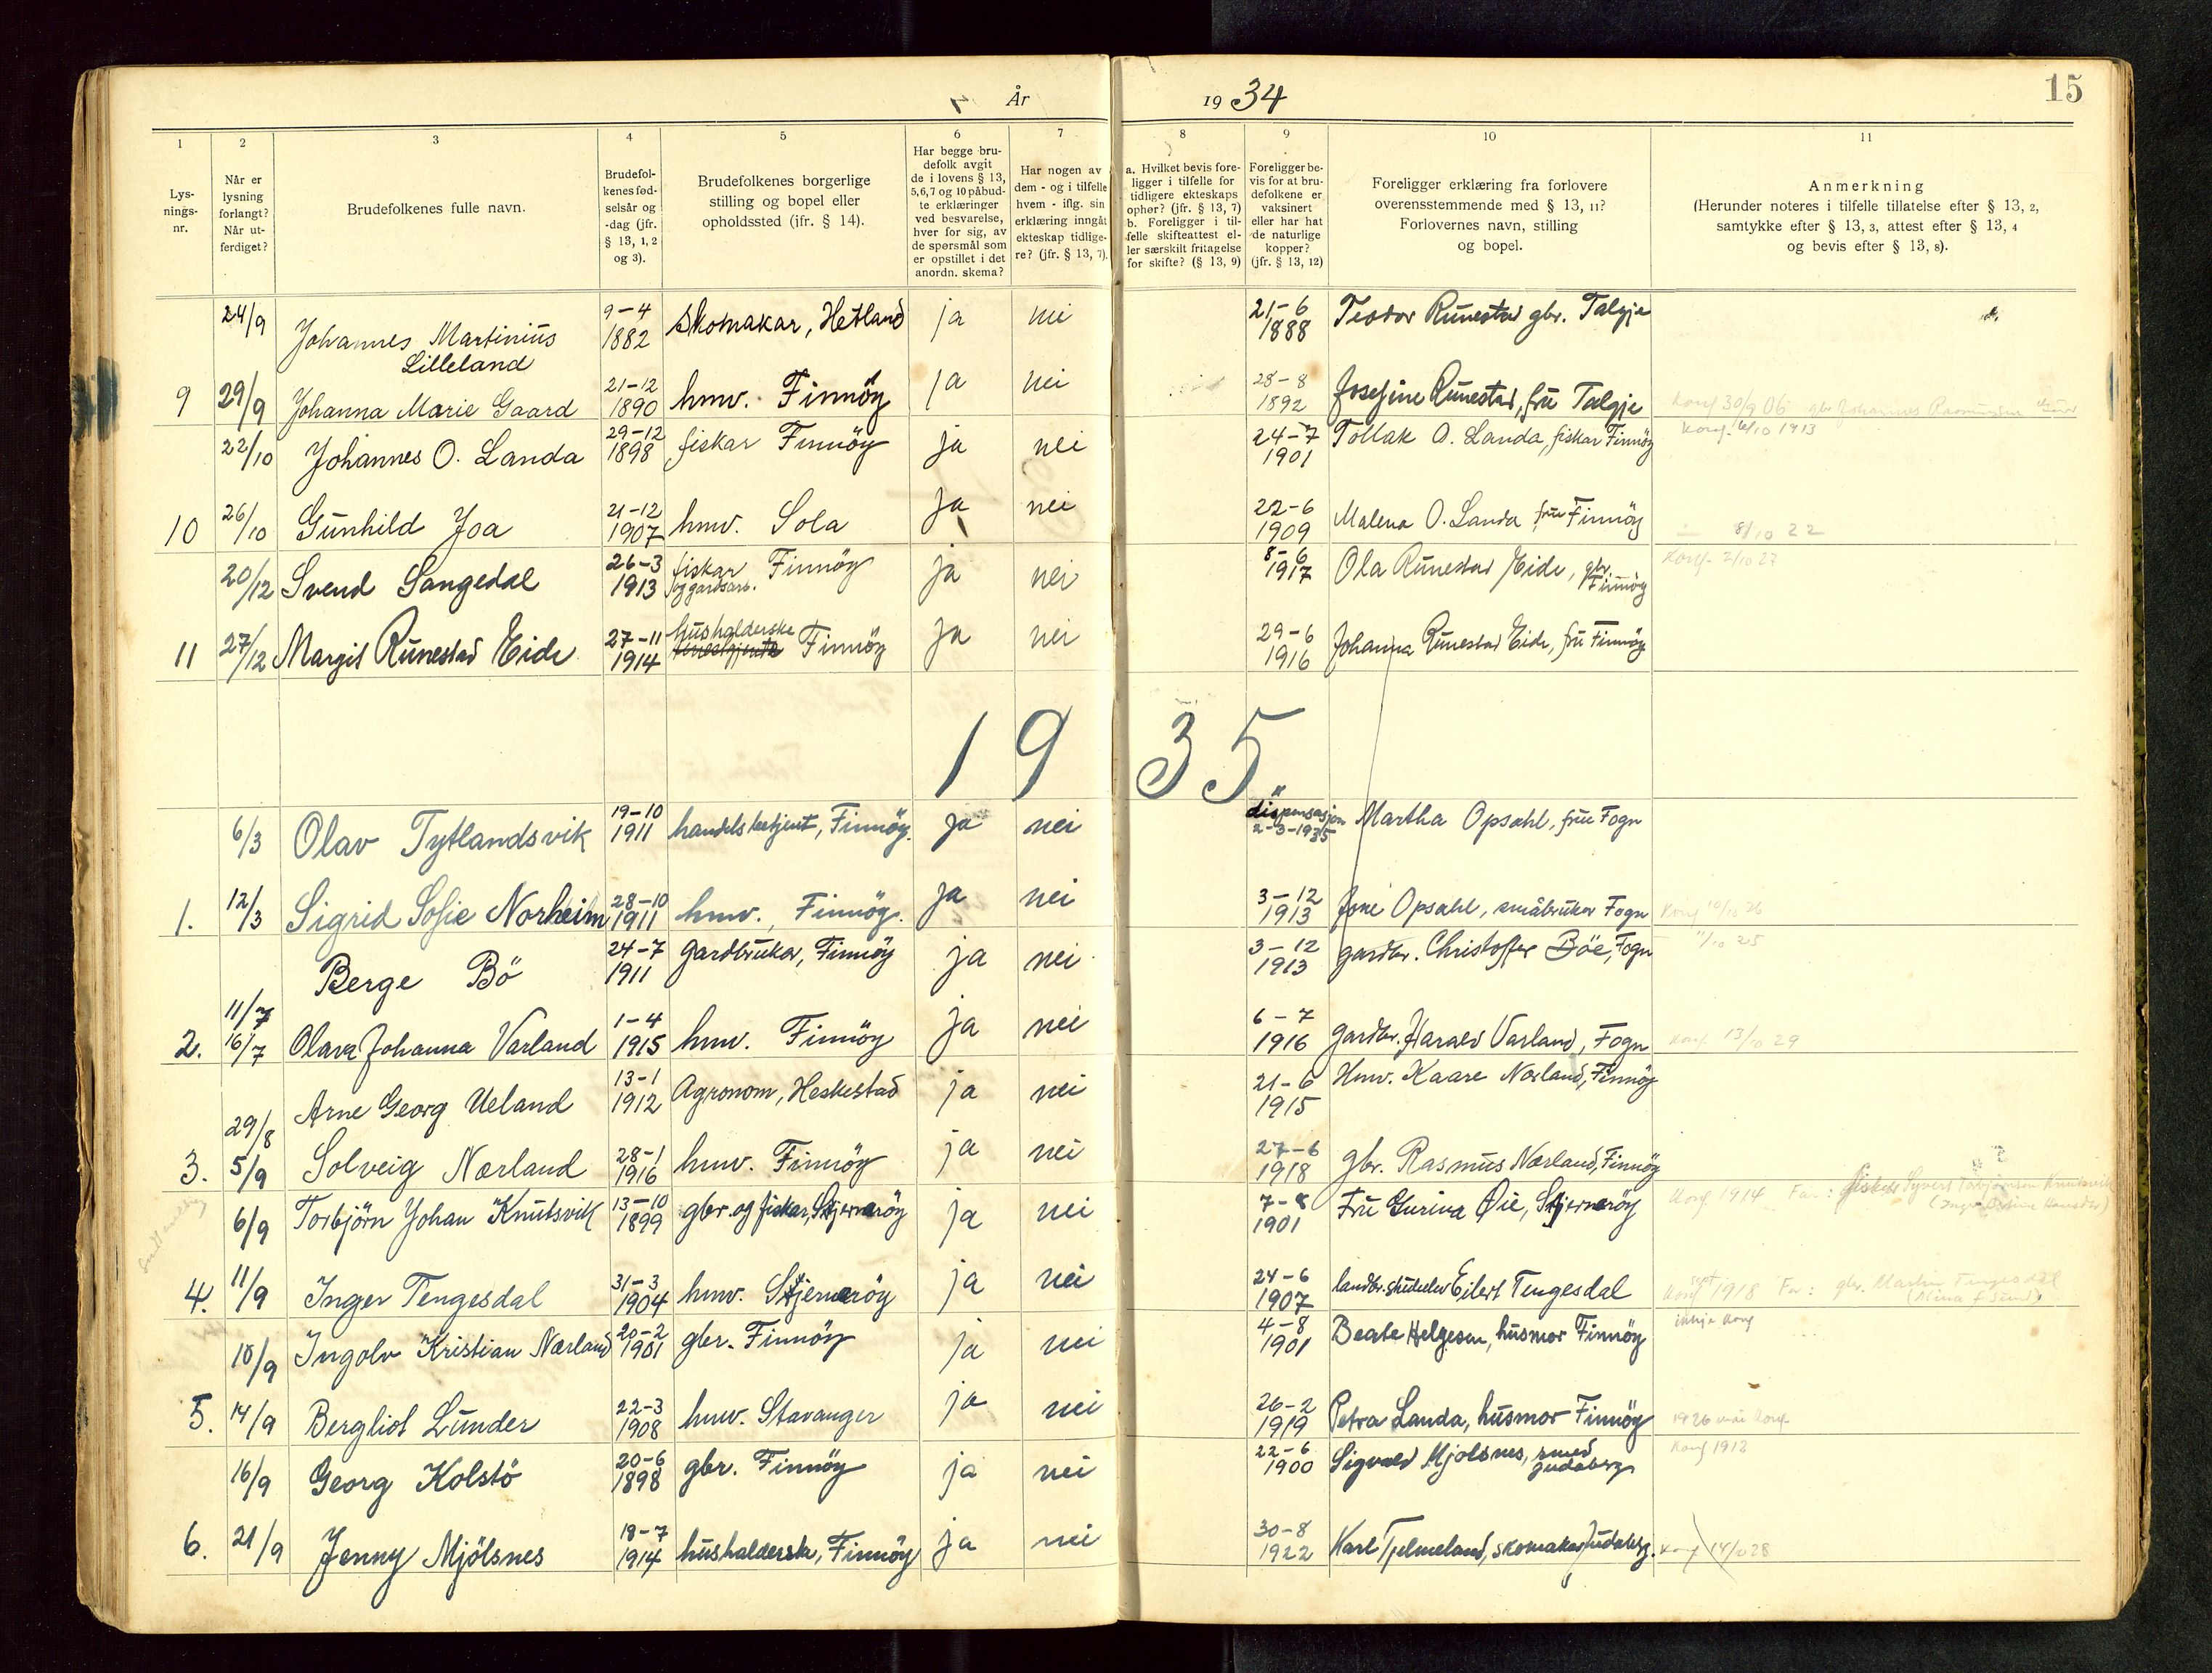 År 1934
15
1 2 3 4 5 6 7 8 9 10 11
Lys-
nings-
nr.
Når er
lysning
forlangt?
Når ut-
ferdiget?
Brudefolkenes fulle navn.
Brudefol-
kenes fød-
selsår og
-dag (jfr.
§ 13, 1, 2
og 3).
Brudefolkenes borgerlige
stilling og bopel eller
opholdssted (jfr. § 14).
Har begge bru-
defolk avgit
de i lovens § 13,
5, 6, 7 og 10 påbud-
te erklæringer
ved besvarelse,
hver for sig, av
de spørsmål som
er opstillet i det
anordn. skema?
Har nogen av
dem - og i tilfelle
hvem - iflg. sin
erklæring inngåt
ekteskap tidlige-
re? (jfr. § 13, 7).
a. Hvilket bevis fore-
ligger i tilfelle for
tidligere ekteskaps
ophør? (jfr. § 13, 7)
b. Foreligger i til-
felle skifteattest el-
ler særskilt fritagelse
for skifte? (§ 13, 9)
Foreligger be-
vis for at bru-
defolkene er
vaksinert
eller har hat
de naturlige
kopper?
(jfr. § 13, 12)
Foreligger erklæring fra forlovere
overensstemmende med § 13, 11?
Forlovernes navn, stilling
og bopel.
Anmerkning
(Herunder noteres i tilfelle tillatelse efter § 13, 2,
samtykke efter § 13, 3, attest efter § 13, 4
og bevis efter § 13, 8).
24/9 Johannes Martinius Lilleland 9-4 1882 skomakar, Hetland ja nei 21-6 1888 Teodor Runestad gbr. Talgje
9 29/9 Johanna Marie Gaard 21-12 1890 hmv. Finnöy ja nei 28-8 1892 Josefine Runestad, fru Talgje Konf 30/9 06 gbr Johannes Rasmussen
22/10 Johannes O. Landa 29-12 1898 fiskar Finnöy ja nei 24-7 1901 Tollak O. Landa, fiskar Finnöy Konf. 6/10 1913
10 26/10 Gunhild Joa 21-12 1907 hmv. Sola ja nei 22-6 1909 Malena O. Landa fru Finnöy 8/10 22
20/12 Svend Sangedal 26-3 1913 fiskar og gardsarb. Finnöy ja nei 8-6 1917 Ola Runestad Eide, gbr. Finnöy Konf. 2/10 27
11 27/12 Margit Runestad Eide 27-11 1914 husholderske Finnöy ja nei 29-6 1916 Johanna Runestad Eide, fru Finnöy
1935.
6/3 Olav Tytlandsvik 19-10 1911 handelsbetjent, Finnöy. ja nei dispensasjon 2-3-1935 Martha Opsahl, fru Fogn
1. 12/3 Sigrid Sofie Norheim 28-10 1911 hmv., Finnöy. ja nei 3-12 1913 Jone Opsahl, småbruker Fogn Konf 10/10 26
Berge Bö 24-7 1911 gardbrukar, Finnöy ja nei 3-12 1913 gardbr. Christoffer Böe, Fogn 11/10 25
2. 11/7 16/7 Olava Johanna Varland 1-4 1915 hmv. Finnöy ja nei 6-7 1916 gardbr. Harald Varland, Fogn Konf. 13/10 29
29/8 Arne Georg Ueland 13-1 1912 Agronom, Heskestad ja nei 21-6 1915 Hmv. Kaare Norland, Finnöy
3. 5/9 Solveig Nærland 28-1 1916 hmv. Finnöy ja nei 27-6 1918 gbr. Rasmus Nærland, Finnöy
6/9 Torbjörn Johan Knutsvik 13-10 1899 gbr. og fiskar, Stjernaröy ja nei 7-8 1901 Fru Gurina Øie, Stjernaröy Konf 1914 Far: fisker Syvert Torbjørnsen Knutsvik
4. 11/9 Inger Tengesdal 31-3 1904 hmv. Stjernaröy ja nei 24-6 1907 landbr. Eilert Tengesdal Konf 1918 Far: gbr. Martin Tengesdal
18/9 Ingolv Kristian Nærland 20-2 1901 gbr. Finnöy ja nei 4-8 1901 Beate Helgesen, husmor Finnöy ikkje konf
5. 14/9 Bergliot Lunder 22-3 1908 hmv. Stavanger ja nei 26-2 1919 Petra Landa, husmor Finnöy 1926 mai konf
16/9 Georg Kolstö 20-6 1898 gbr. Finnöy ja nei 22-6 1900 Sigvald Mjolsnes, smed Judaberg Konf 1912
6. 21/9 Jenny Mjölsnes 18-7 1914 husholderske, Finnöy ja nei 30-8 1922 Karl Tjelmeland, skomaker Judaberg. Konf 14/10 28